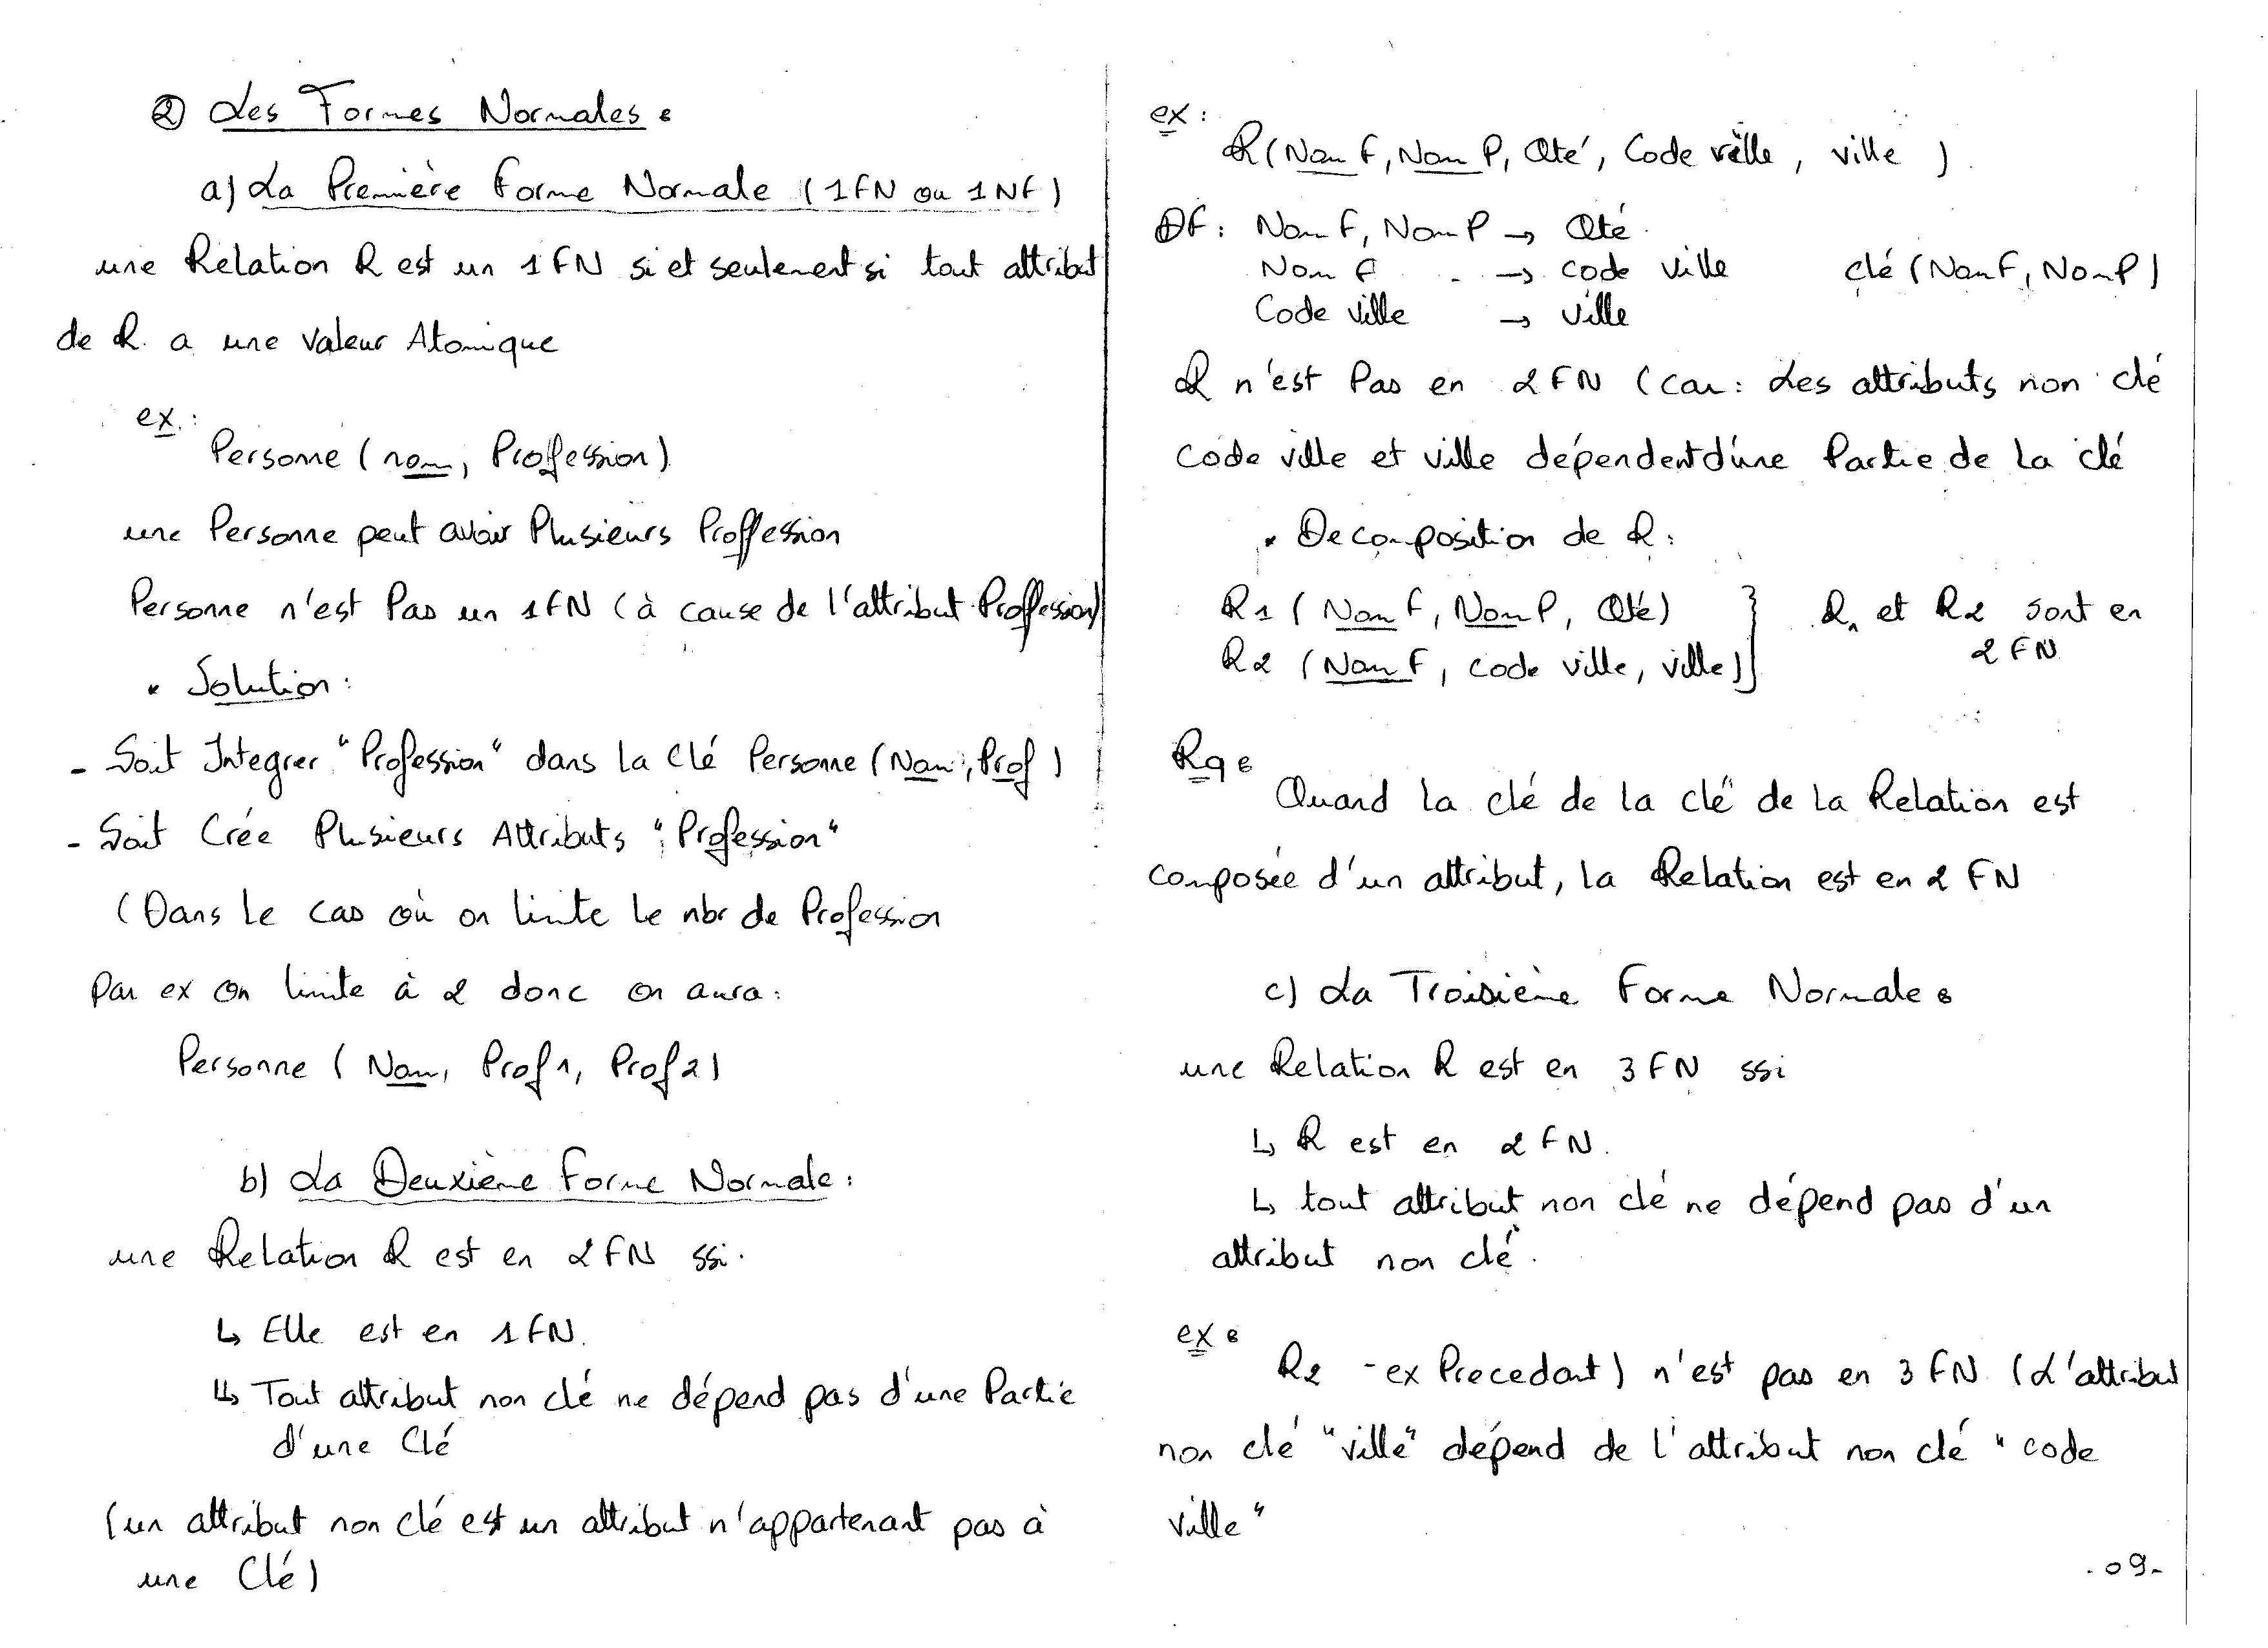 ② Les Formes Normales :
a) La Première Forme Normale (1FN ou 1NF)
une Relation R est un 1FN si et seulement si tout attribut
de R a une valeur Atomique
ex :
Personne (nom, Profession)
une Personne peut avoir Plusieurs Proffession
Personne n'est Pas un 1FN (à cause de l'attribut Proffession)
• Solution :
- Soit Integrer "Profession" dans la Clé Personne (Nom, Prof)
- Soit Crée Plusieurs Attributs "Profession"
(Dans le cas où on limite le nbr de Profession
Par ex on limite à 2 donc on aura :
Personne (Nom, Prof1, Prof2)
b) La Deuxième Forme Normale :
une Relation R est en 2FN ssi.
↳ Elle est en 1FN.
↳ Tout attribut non clé ne dépend pas d'une Partie
d'une Clé
(un attribut non clé est un attribut n'appartenant pas à
une Clé)
ex :
R (Nom F, Nom P, Qté, Code ville, ville)
DF : Nom F, Nom P → Qté
Nom F → code ville clé (Nom F, Nom P)
Code ville → ville
R n'est Pas en 2FN (car : Les attributs non clé
code ville et ville dépendent d'une Partie de la clé
• Decomposition de R :
R1 (Nom F, Nom P, Qté) } R1 et R2 sont en
R2 (Nom F, code ville, ville) 2FN
Rq :
Quand la clé de la clé de la Relation est
composée d'un attribut, la Relation est en 2FN
c) La Troisième Forme Normale :
une Relation R est en 3FN ssi
↳ R est en 2FN.
↳ tout attribut non clé ne dépend pas d'un
attribut non clé.
ex :
R2 -ex Precedant) n'est pas en 3FN (L'attribut
non clé "ville" dépend de l'attribut non clé "code
ville"
-09-